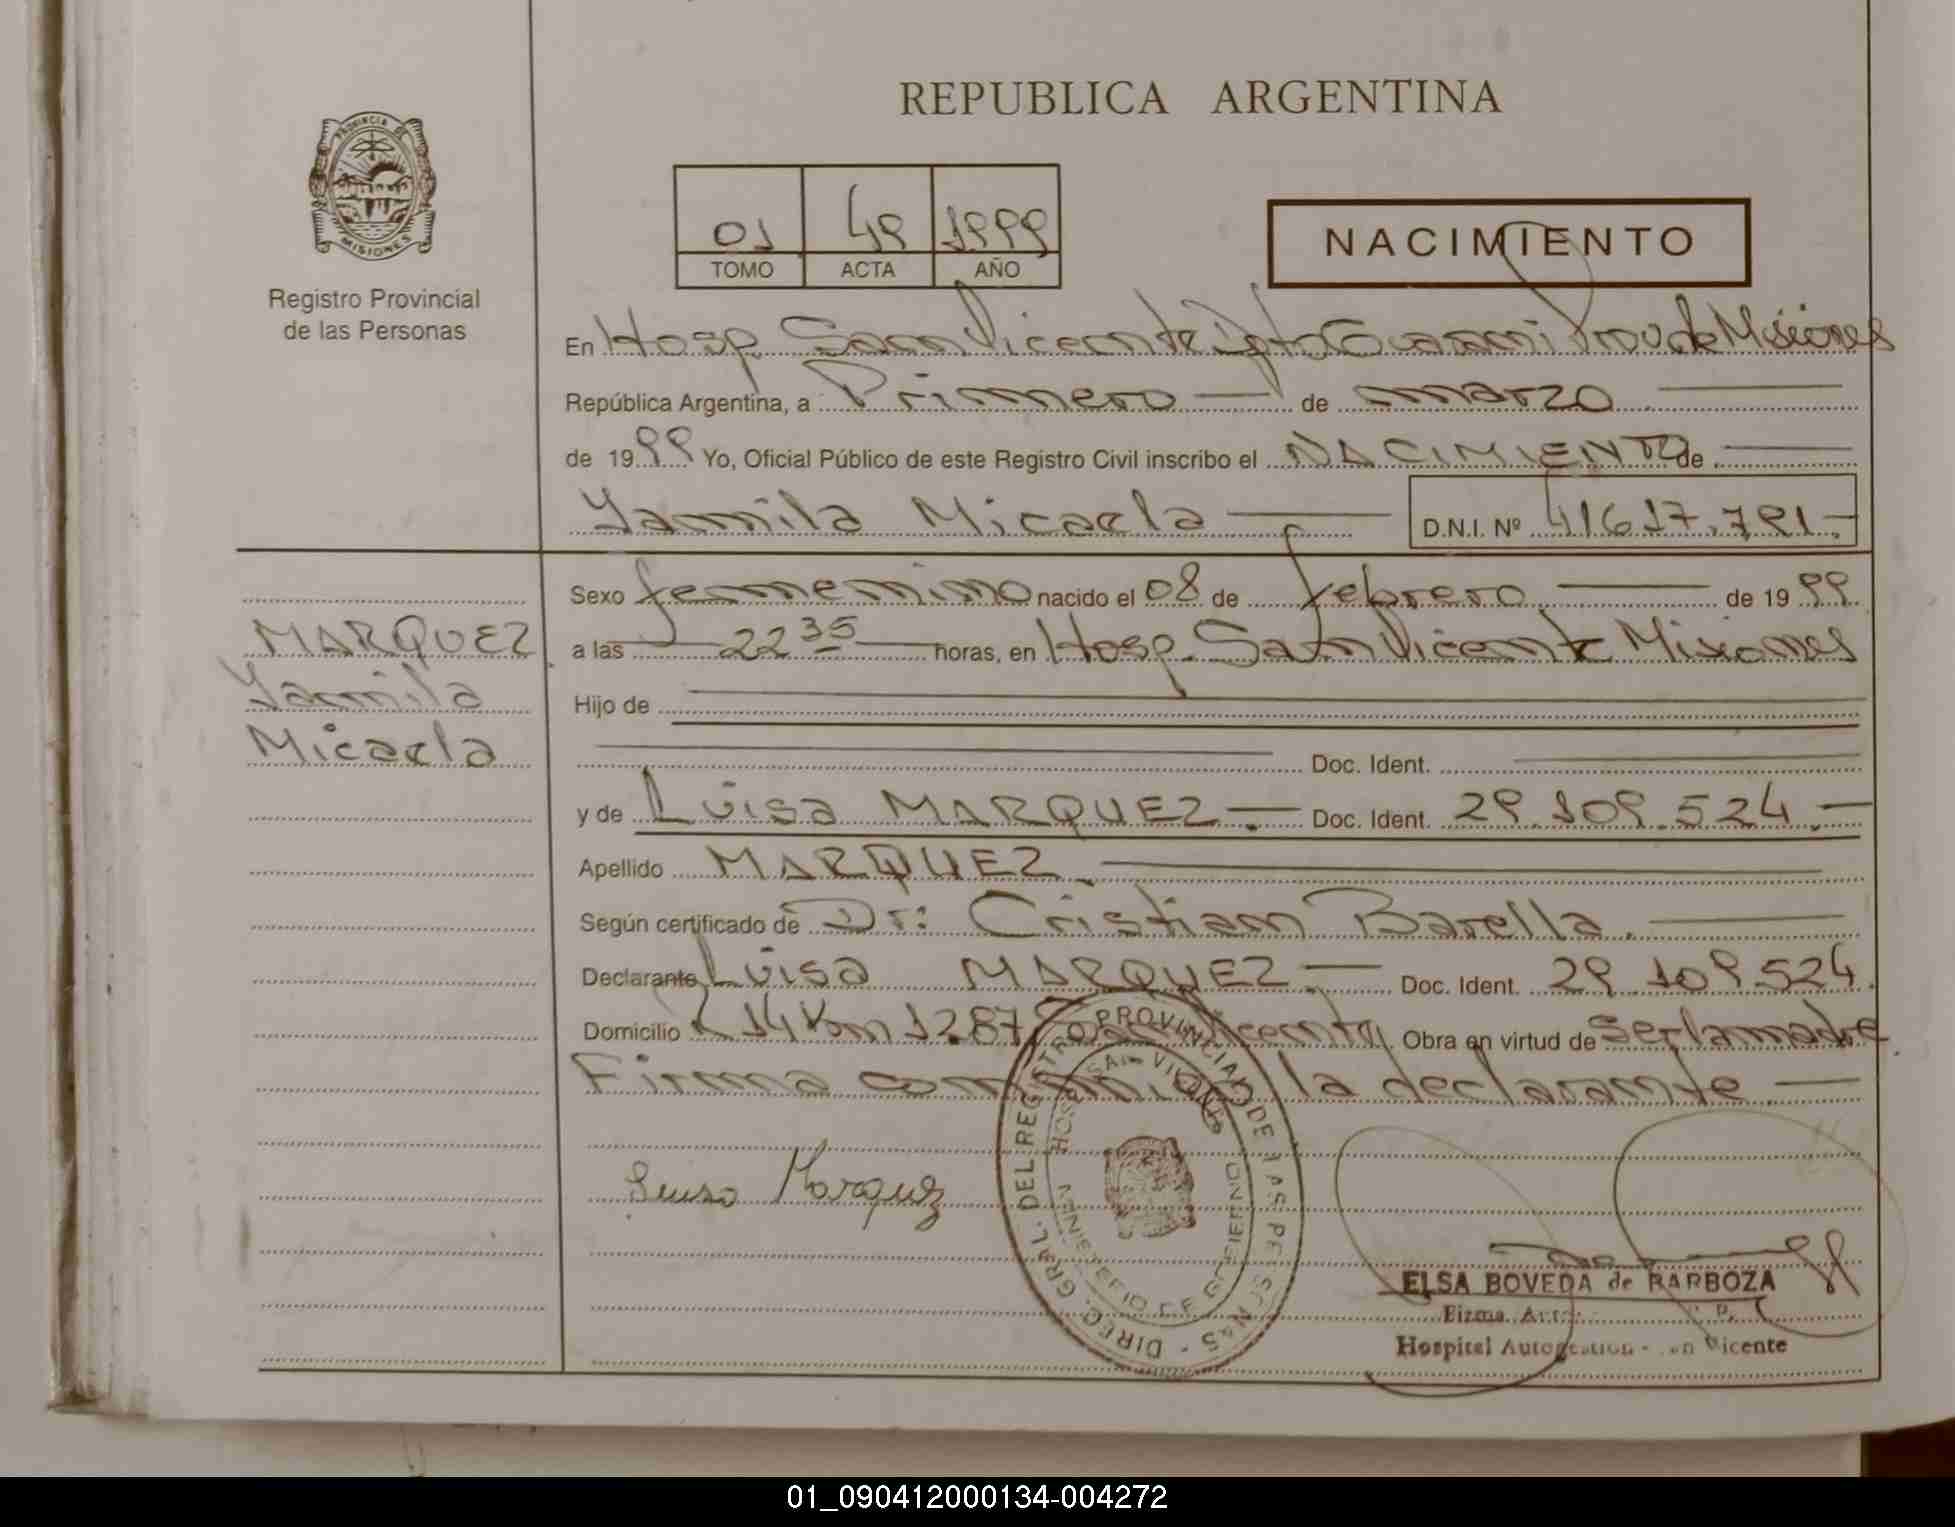 REPUBLICA ARGENTINA
PROVINCIA DE
MISIONES
Registro Provincial
de las Personas
01 49 1999
TOMO ACTA AÑO
NACIMIENTO
En Hosp. San Vicente Dpto Guarani Prov de Misiones
República Argentina, a Primero de marzo
de 1999 Yo, Oficial Público de este Registro Civil inscribo el NACIMIENTO de
Yamila Micaela D.N.I. Nº 41.617.791.-
MARQUEZ
Yamila
Micaela
Sexo femenino nacido el 08 de febrero de 1999
a las 22 35 horas, en Hosp. San Vicente Misiones
Hijo de
Doc. Ident.
y de Luisa MARQUEZ.- Doc. Ident. 29.109.524.-
Apellido MARQUEZ.
Según certificado de Dr: Cristian Barella.
Declarante Luisa MARQUEZ.- Doc. Ident. 29.109.524.
Domicilio 14 Km 1287 San Vicente Obra en virtud de ser la madre.
Firma conmigo la declarante
Luisa Marquez
DIREC. GRAL. DEL REGISTRO PROVINCIAL DE LAS PERSONAS
HOSP. SAN VICENTE
MINISTERIO DE GOBIERNO
ELSA BOVEDA de BARBOZA
Firma
Hospital Autogestion Vicente
01_090412000134-004272